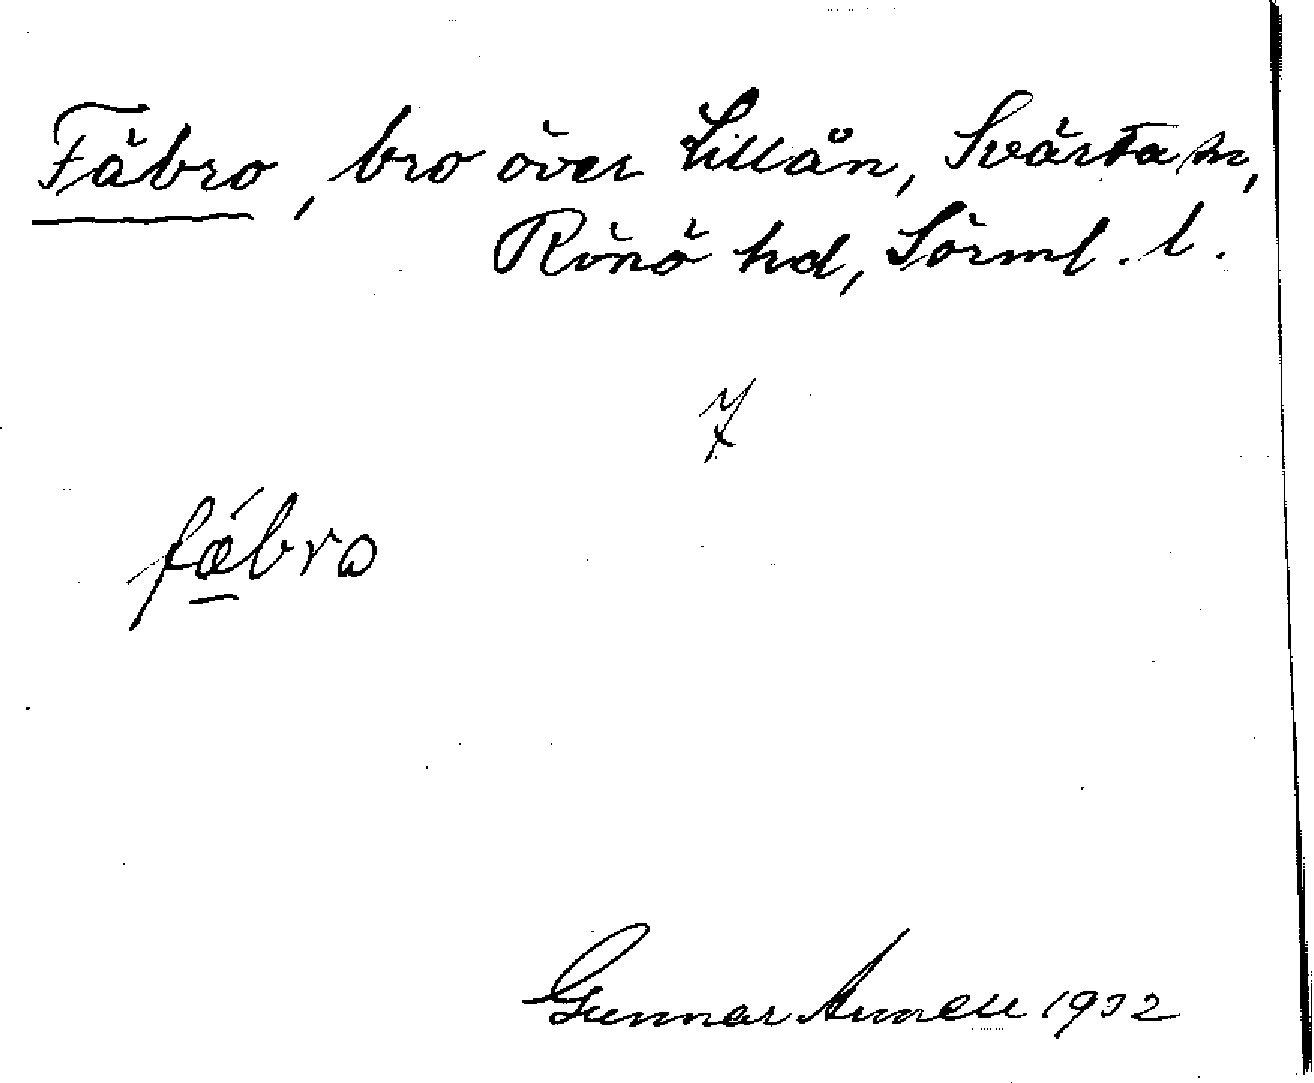 Fäbro, bro över Lillån, Svärta sn,
Rönö hd, Sörml. l.
7
fǽbrω
Gunnar Annell 1932